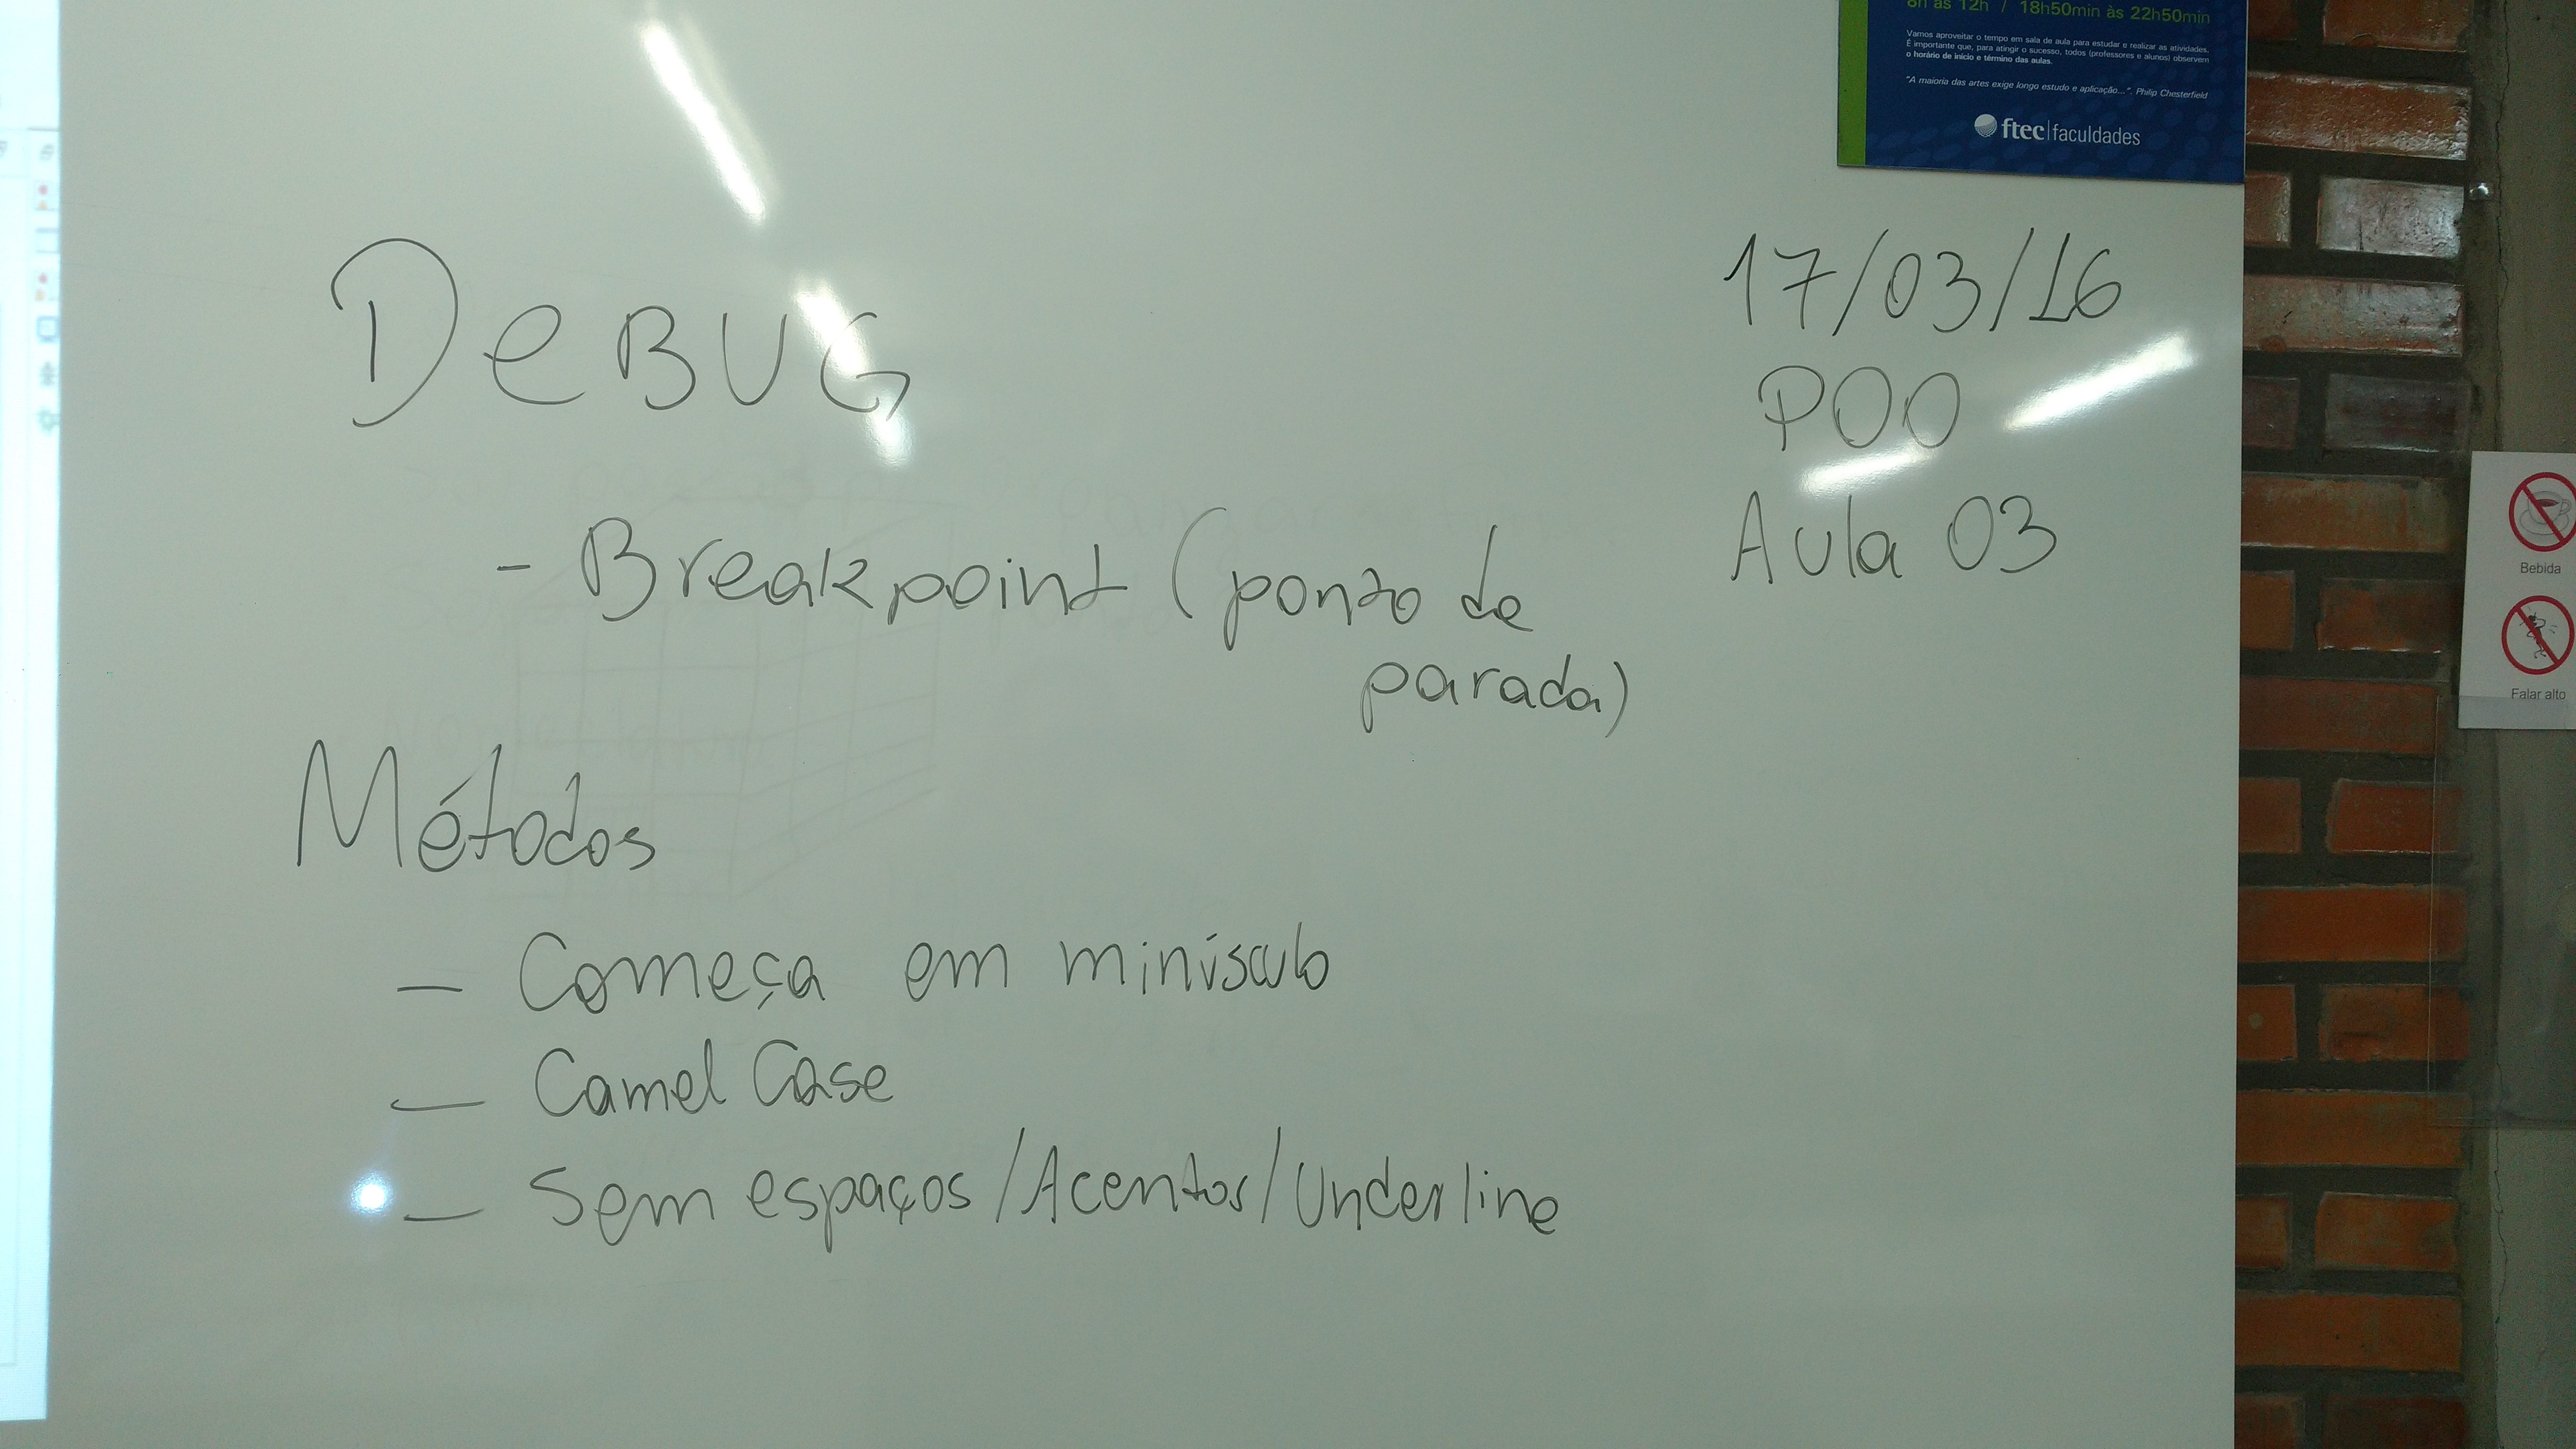 8h às 12h / 18h50min às 22h50min
Vamos aproveitar o tempo em sala de aula para estudar e realizar as atividades.
É importante que, para atingir o sucesso, todos (professores e alunos) observem
o horário de início e término das aulas.
"A maioria das artes exige longo estudo e aplicação...". Philip Chesterfield
ftec|faculdades
17/03/16
POO
Aula 03
DeBUG
- Breakpoint (ponto de
parada)
Métodos
- Começa em minúsculo
- Camel Case
- Sem espaços/Acentos/Underline
Bebida
Falar alto